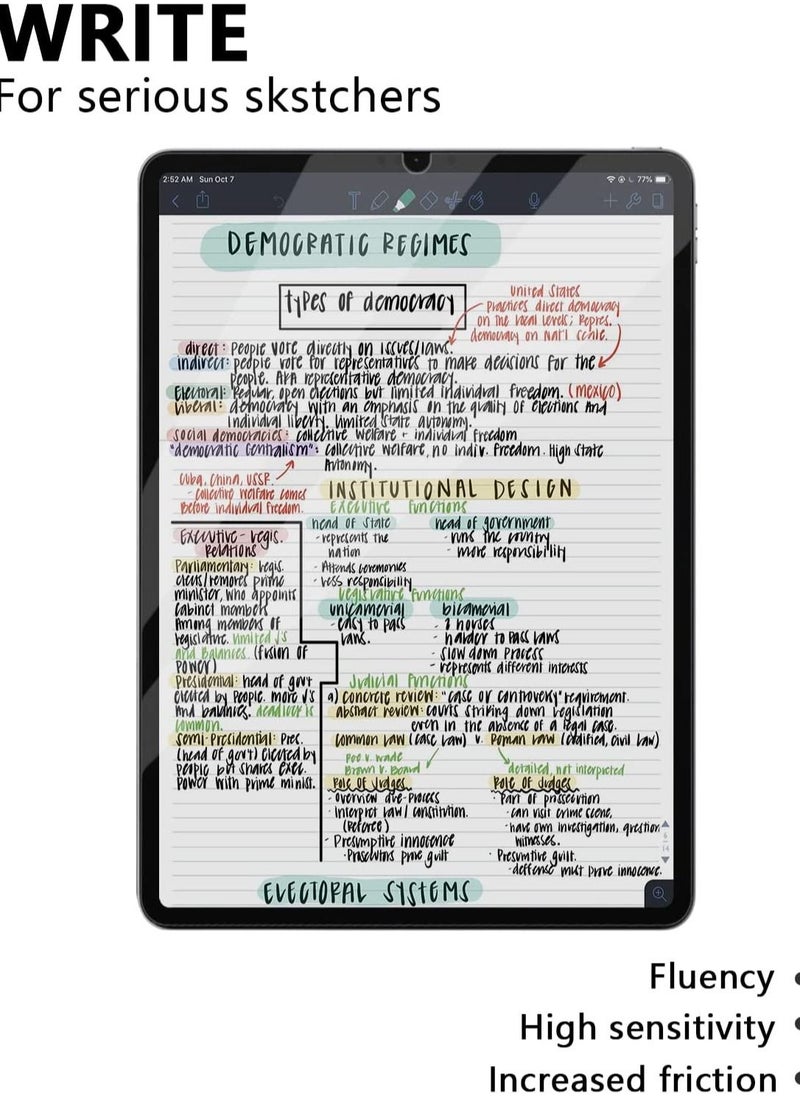 WRITE
For serious skstchers
2:52 AM Sun Oct 7
77%
DEMOCRATIC REGIMES
types of democracy
United States
practices direct democracy
on the local levels; Repres.
democracy on Nat'l scale.
direct: People vote directly on issues/laws.
indirect: people vote for representatives to make decisions for the
people. AKA representative democracy.
Electoral: Regular, open elections but limited individual freedom. (MEXICO)
Liberal: democracy with an emphasis on the quality of elections and
individual liberty. Limited State Autonomy.
Social democracies: collective welfare + individual freedom
"democratic centralism": collective welfare, no indiv. freedom. High State
Autonomy.
Cuba, China, USSR.
- collective welfare comes
before individual freedom.
INSTITUTIONAL DESIGN
Executive functions
head of State
- represents the
nation
- Attends ceremonies
- Less responsibility
head of government
- runs the country
- more responsibility
Executive - Legis.
Relations
Parliamentary: Legis.
elects/removes prime
minister, who appoints
cabinet members
among members of
legislature. Limited √'s
and Balances. (fusion of
power)
Presidential: head of govt
elected by people. more √'s
and balances. deadlock is
common.
Semi-Presidential: Pres.
(head of govt) elected by
people but shares exec.
power with prime minist.
Legislative functions
unicameral
- easy to pass
laws.
bicameral
- 2 houses
- harder to pass laws
- slow down process
- represents different interests
Judicial functions
a) Concrete review: "case or controversy" requirement.
abstract review: courts striking down legislation
even in the absence of a legal case.
Common law (case law) v. Roman law (codified, civil law)
Roe v. Wade
Brown v. Board
detailed, not interpreted
Role of Judges
- overview due-process
- Interpret law/constitution.
(Referee)
- Presumptive innocence
- Prosecutors prove guilt
Role of Judges
- Part of prosecution
- can visit crime scene,
- have own investigation, question
witnesses.
- Presumptive guilt.
- deffense must prove innocence.
ELECTORAL SYSTEMS
Fluency
High sensitivity
Increased friction